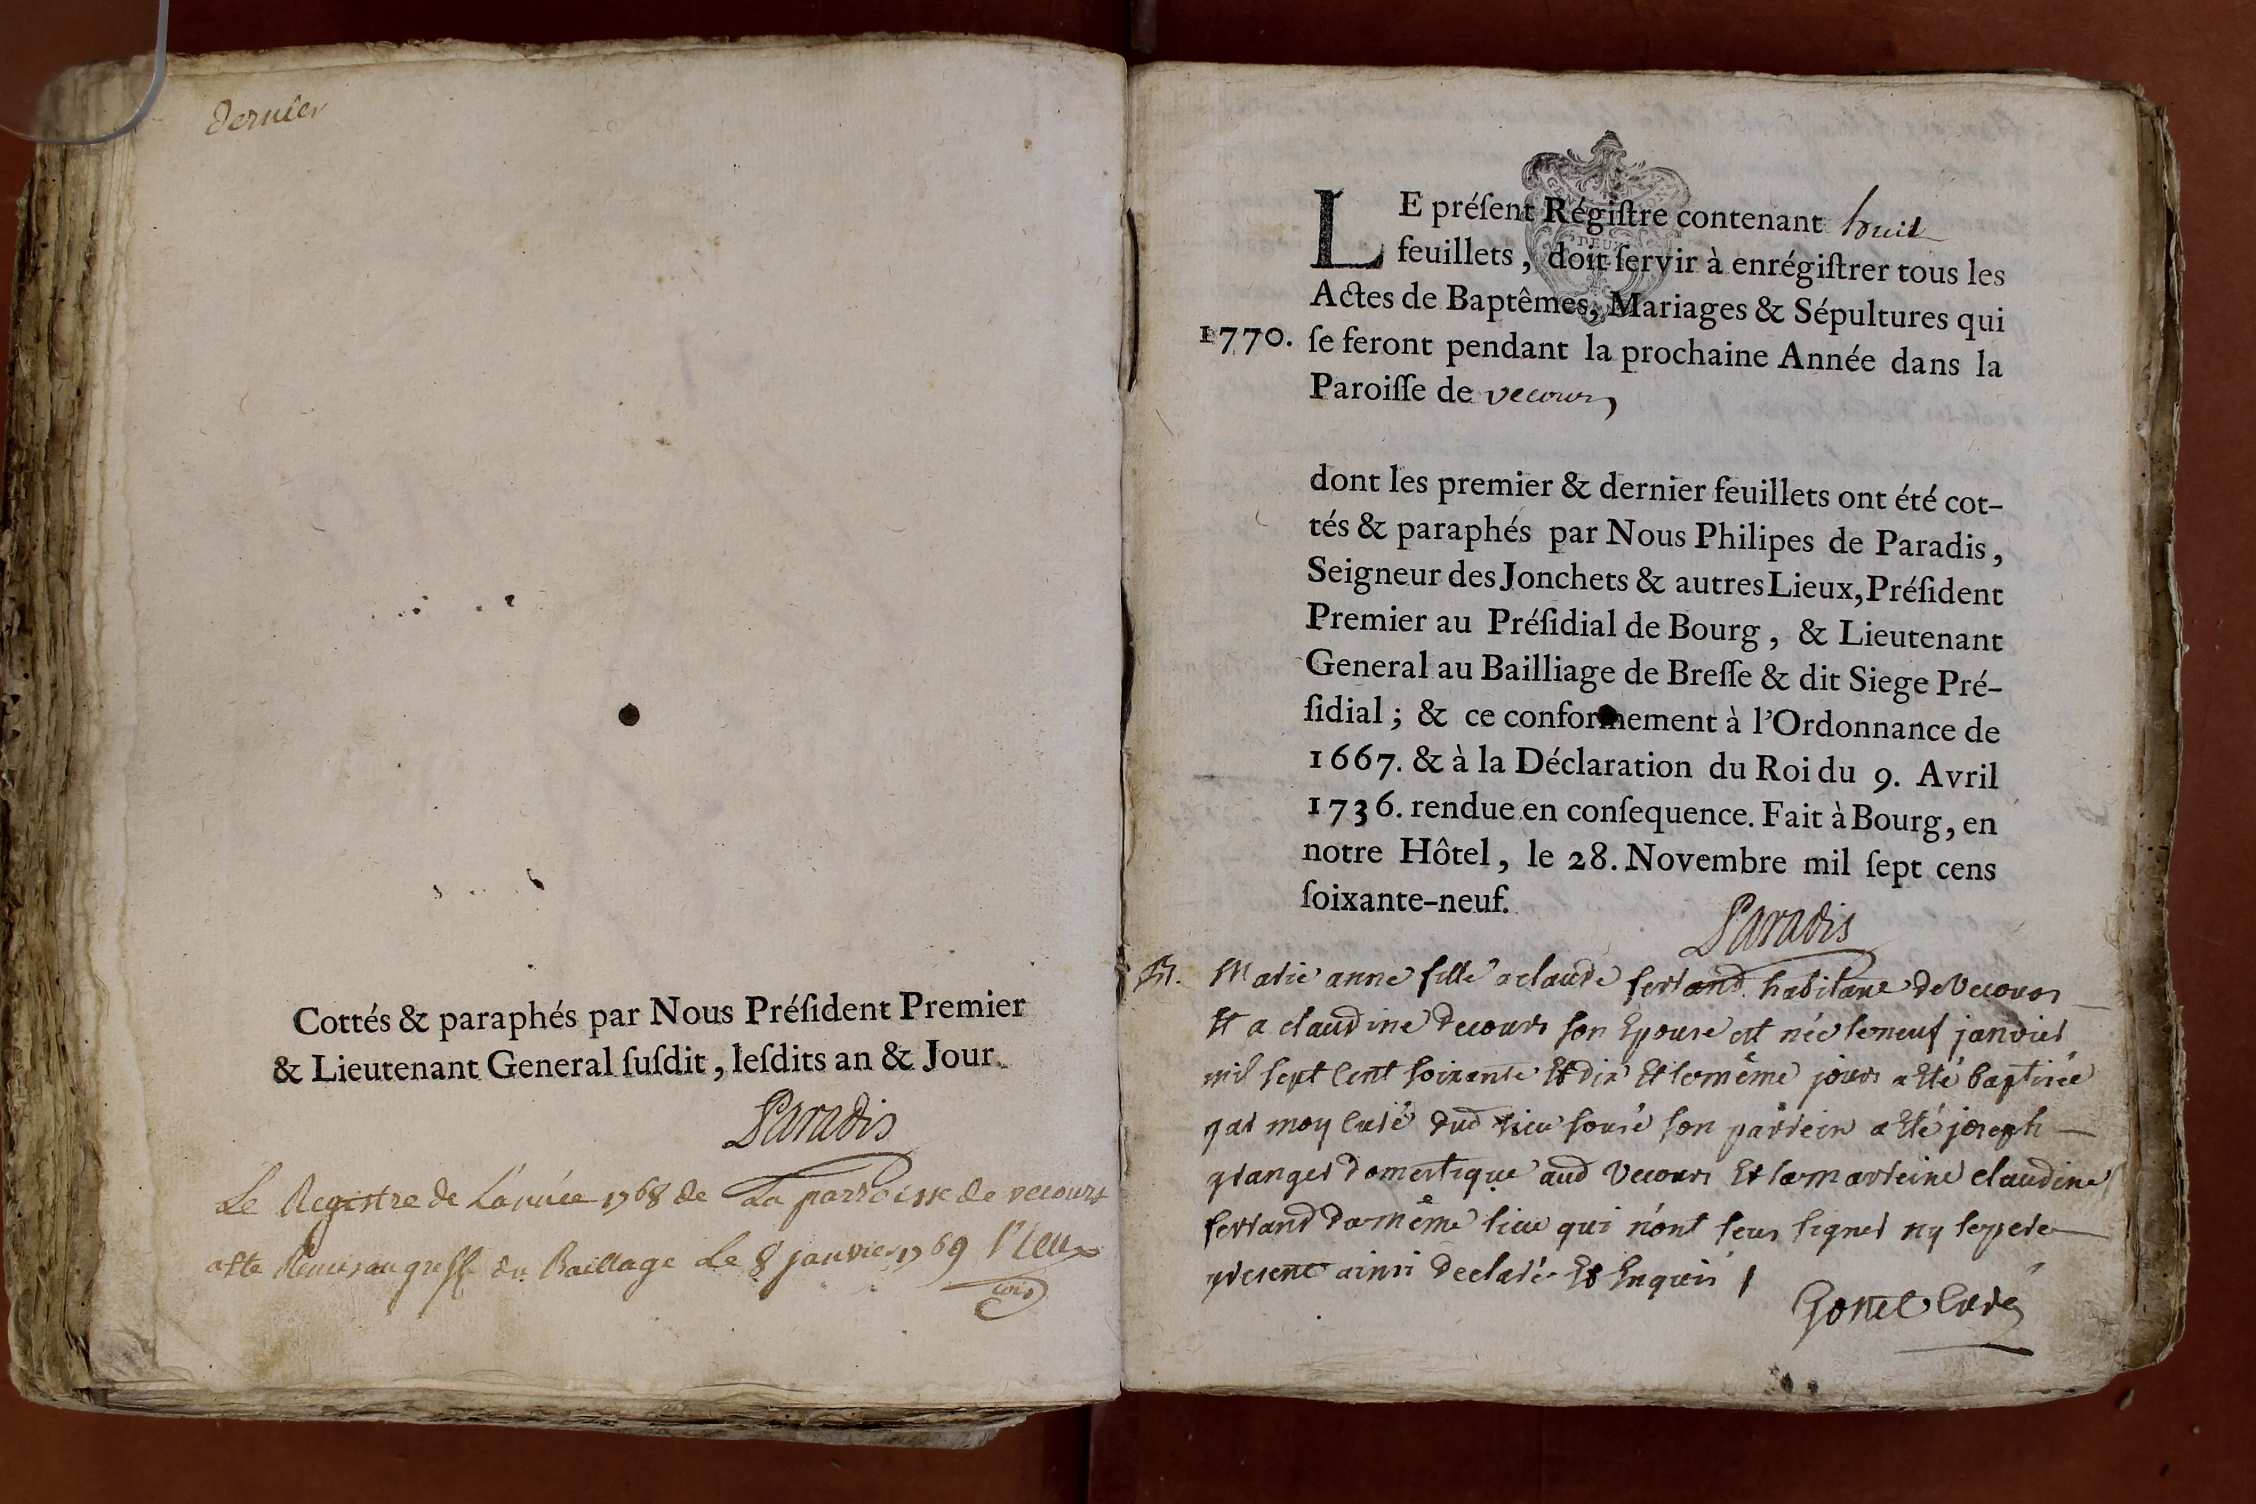 dernier
Cottés & paraphés par Nous Préſident Premier
& Lieutenant General ſuſdit, leſdits an & Jour.
Paradis
Le Registre de L'année 1768 de La parroisse de vecours
a été Remis au greffe du Baillage Le 8 janvier 1769
LE préſent Régiſtre contenant huit
feuillets, doit ſervir à enrégiſtrer tous les
Actes de Baptêmes, Mariages & Sépultures qui
1770. ſe feront pendant la prochaine Année dans la
Paroiſſe de vecours
dont les premier & dernier feuillets ont été cot-
tés & paraphés par Nous Philipes de Paradis,
Seigneur des Jonchets & autres Lieux, Préſident
Premier au Préſidial de Bourg, & Lieutenant
General au Bailliage de Breſſe & dit Siege Pré-
ſidial; & ce conformement à l'Ordonnance de
1667. & à la Déclaration du Roi du 9. Avril
1736. rendue en conſequence. Fait à Bourg, en
notre Hôtel, le 28. Novembre mil ſept cens
ſoixante-neuf.
Paradis
Marie anne fille a claude ferrand habitant de Vecours
Et a claudine decours son Epouse est née le neuf janvier
mil sept cent soixante Et dix Et le même jour a Eté baptisée
par moy curé dud lieu sousé son parrein a Eté joseph
granger domestique aud Vecours Et la marreine claudine
ferrand du même lieu qui n'ont sceu signer ny le pere
present ainsi declaré Et Enquis
Gonet Curé